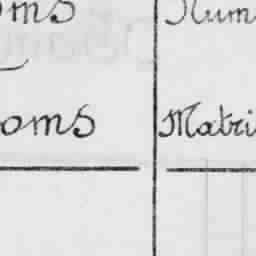 oms Num
oms Matri